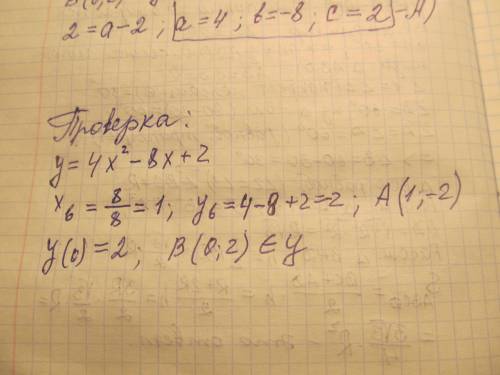 2=a-2; a=4; в=-8; c=2 -A)
Проверка:
y=4x²-8x+2
x₆ = 8/8 = 1; y₆=4-8+2=-2; A(1;-2)
y(0)=2; B(0;2) ∈ y